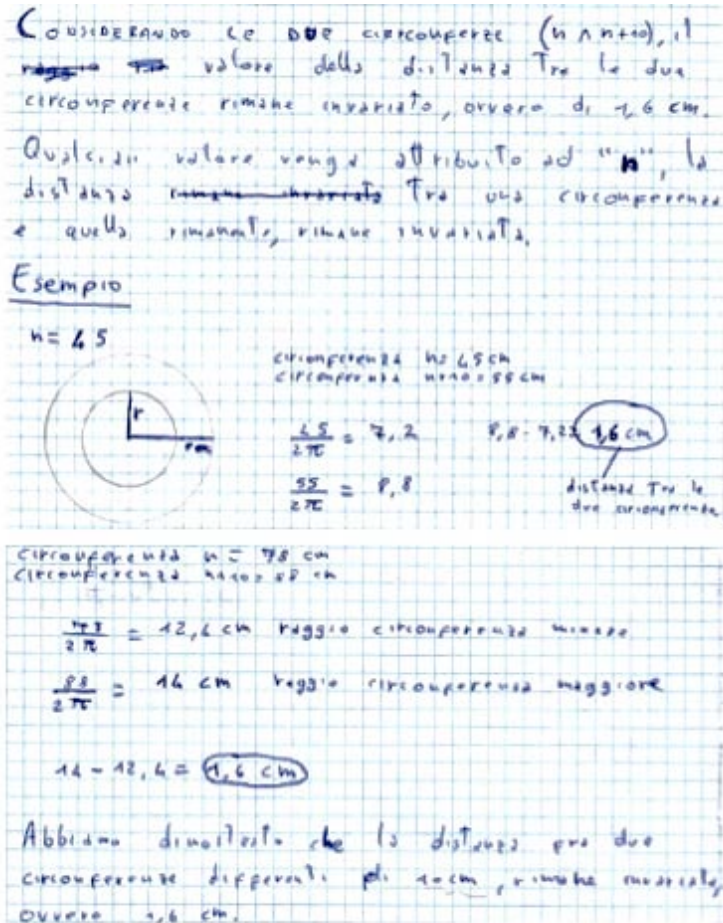 CONSIDERANDO LE DUE circonferenze (n ∧ n+10), il
valore della distanza Tra le due
circonferenze rimane invariato, ovvero di 1,6 cm.
Qualsiasi valore venga attribuito ad "n", la
distanza Tra una circonferenza
e quella rimanente, rimane invariata.
Esempio
n = 45
circonferenza n = 45 cm
circonferenza n+10 = 55 cm
r
45/2π = 7,2
8,8 - 7,2= 1,6 cm
55/2π = 8,8
distanza Tra le
due circonferenze
circonferenza n = 78 cm
circonferenza n+10 = 88 cm
78/2π = 12,4 cm raggio circonferenza minore
88/2π = 14 cm raggio circonferenza maggiore
14 - 12,4 = 1,6 cm
Abbiamo dimostrato che la distanza fra due
circonferenze differenti di 10 cm, rimane invariata,
ovvero 1,6 cm.